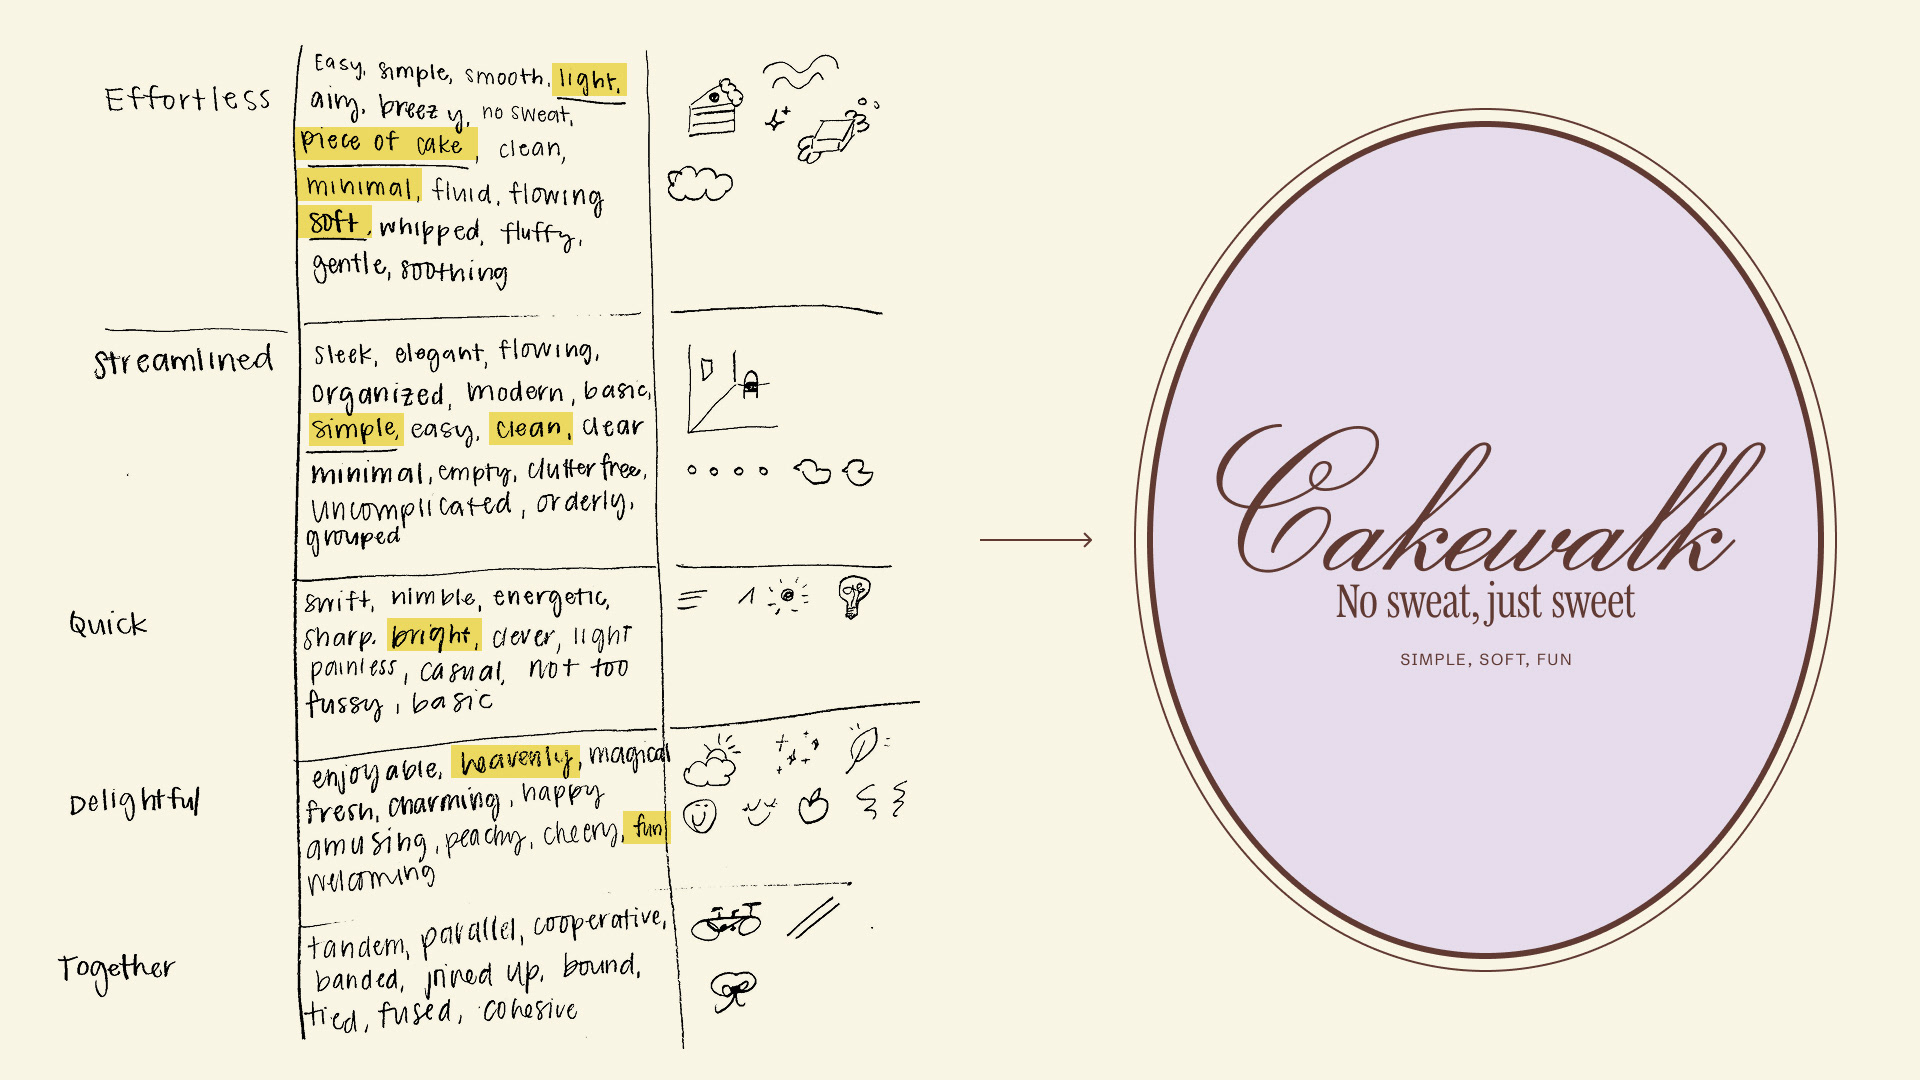 Effortless
Easy, simple, smooth, light,
airy, breezy, no sweat,
piece of cake, clean,
minimal, fluid, flowing
soft, whipped, fluffy,
gentle, soothing
Streamlined
sleek, elegant, flowing,
organized, modern, basic,
simple, easy, clean, clear
minimal, empty, clutter free,
uncomplicated, orderly,
grouped
Quick
swift, nimble, energetic,
sharp. bright, clever, light
painless, casual, not too
fussy, basic
Delightful
enjoyable, heavenly, magical
fresh, charming, happy
amusing, peachy, cheery, fun
welcoming
Together
tandem, parallel, cooperative,
banded, joined up, bound,
tied, fused, cohesive
Cakewalk
No sweat, just sweet
SIMPLE, SOFT, FUN